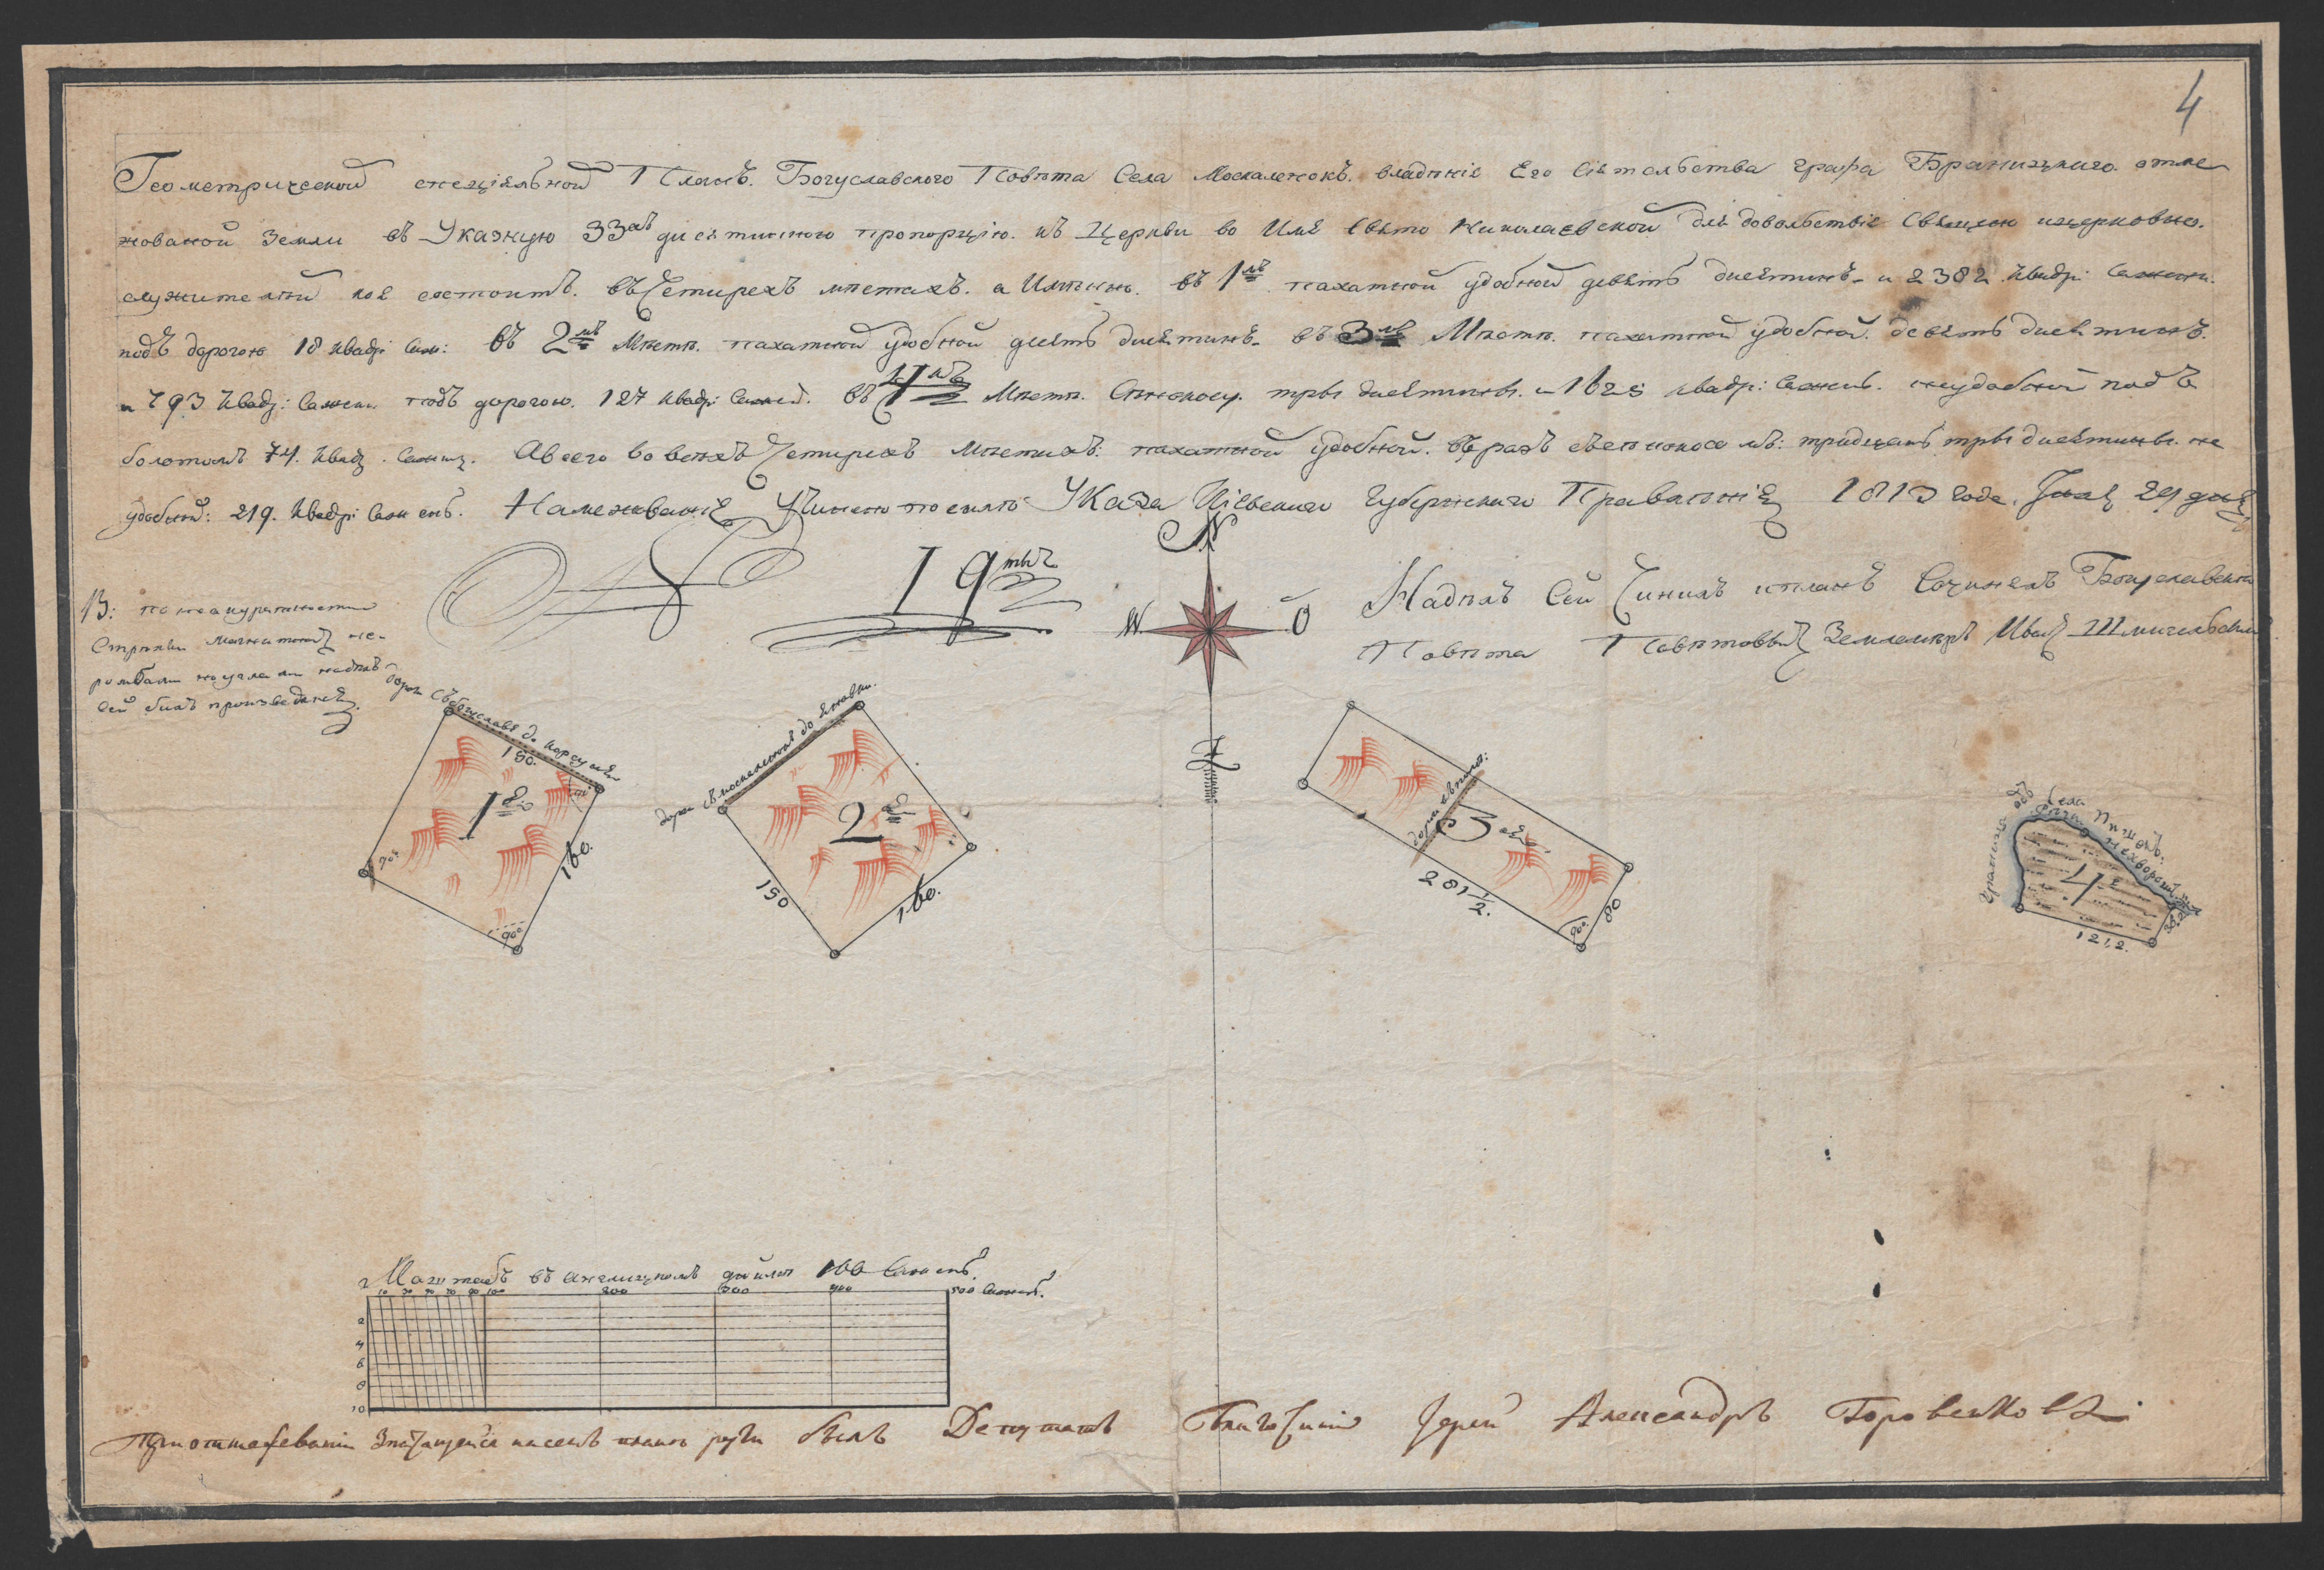 4
Геометрической специальной Планъ. Богуславского Повѣта Села Москаленокъ. владѣнiе Его Сiятельства графа Браницкаго. отме
жованой Земли въ Указную 33ехъ десятинною пропорцiю. къ Церкви во Имя Свято Николаевской для довольствiя Священо ицерковно.
служителей кое состоитъ. въ Четирехъ мѣстахъ. а Имѣнно. въ 1мъ пахатной удобной девять диситинъ. и 2382 квадр: Сажени.
подъ дорогою 18 квадр: Саж: въ 2мъ Мѣстѣ. пахатной удобной десять диситинъ. въ 3мъ Мѣстѣ. пахатной удобной. девять диситинъ.
и 793 квадр: Сажени подъ дорогою. 127 квадр: Сажней. въ 4мъ Мѣстѣ. Сѣнокосу. три диситины. и 1625 квадр: Сажень. неудобной подъ
болотомъ 74. квад. Сажн. Авсего во всѣхъ Четирехъ Мѣстахъ: пахатной удобной. въ разъ съсенокосомъ: тридцать три диситины. не
удобной: 219. квадр: Сажень. Намежеванiе Учинено посилѣ Указа Кiевскаго Губернскаго Правленiя 1813 года. 29 дня
19ть
N
W
O
Надѣлъ Сей Чинилъ ипланъ Сочинялъ Богуславскаго
Повѣта Повѣтовый Землемѣръ Иванъ
В: по неакуратности
Стрѣлки Магнитной не-
румбами ноуглами надѣлъ
Сей билъ произведенъ.
дорога Съ Богуслава до Корсуня
150.
1е
90°
160.
90°
дорога съ москаленокъ до
2е
150
160.
3е
281 1/2.
80
90°
Села Пишокъ.
граница
4е
121,2.
Маштабъ въ англицкомъ дюймѣ 100 Сажень.
10 30 50 70 90 100 200 300 400 500 Сажень.
2
4
6
8
10
При отмежеванiи Значущейся насемъ планѣ руги былъ Депутатъ Благочинiй Iерей Александръ